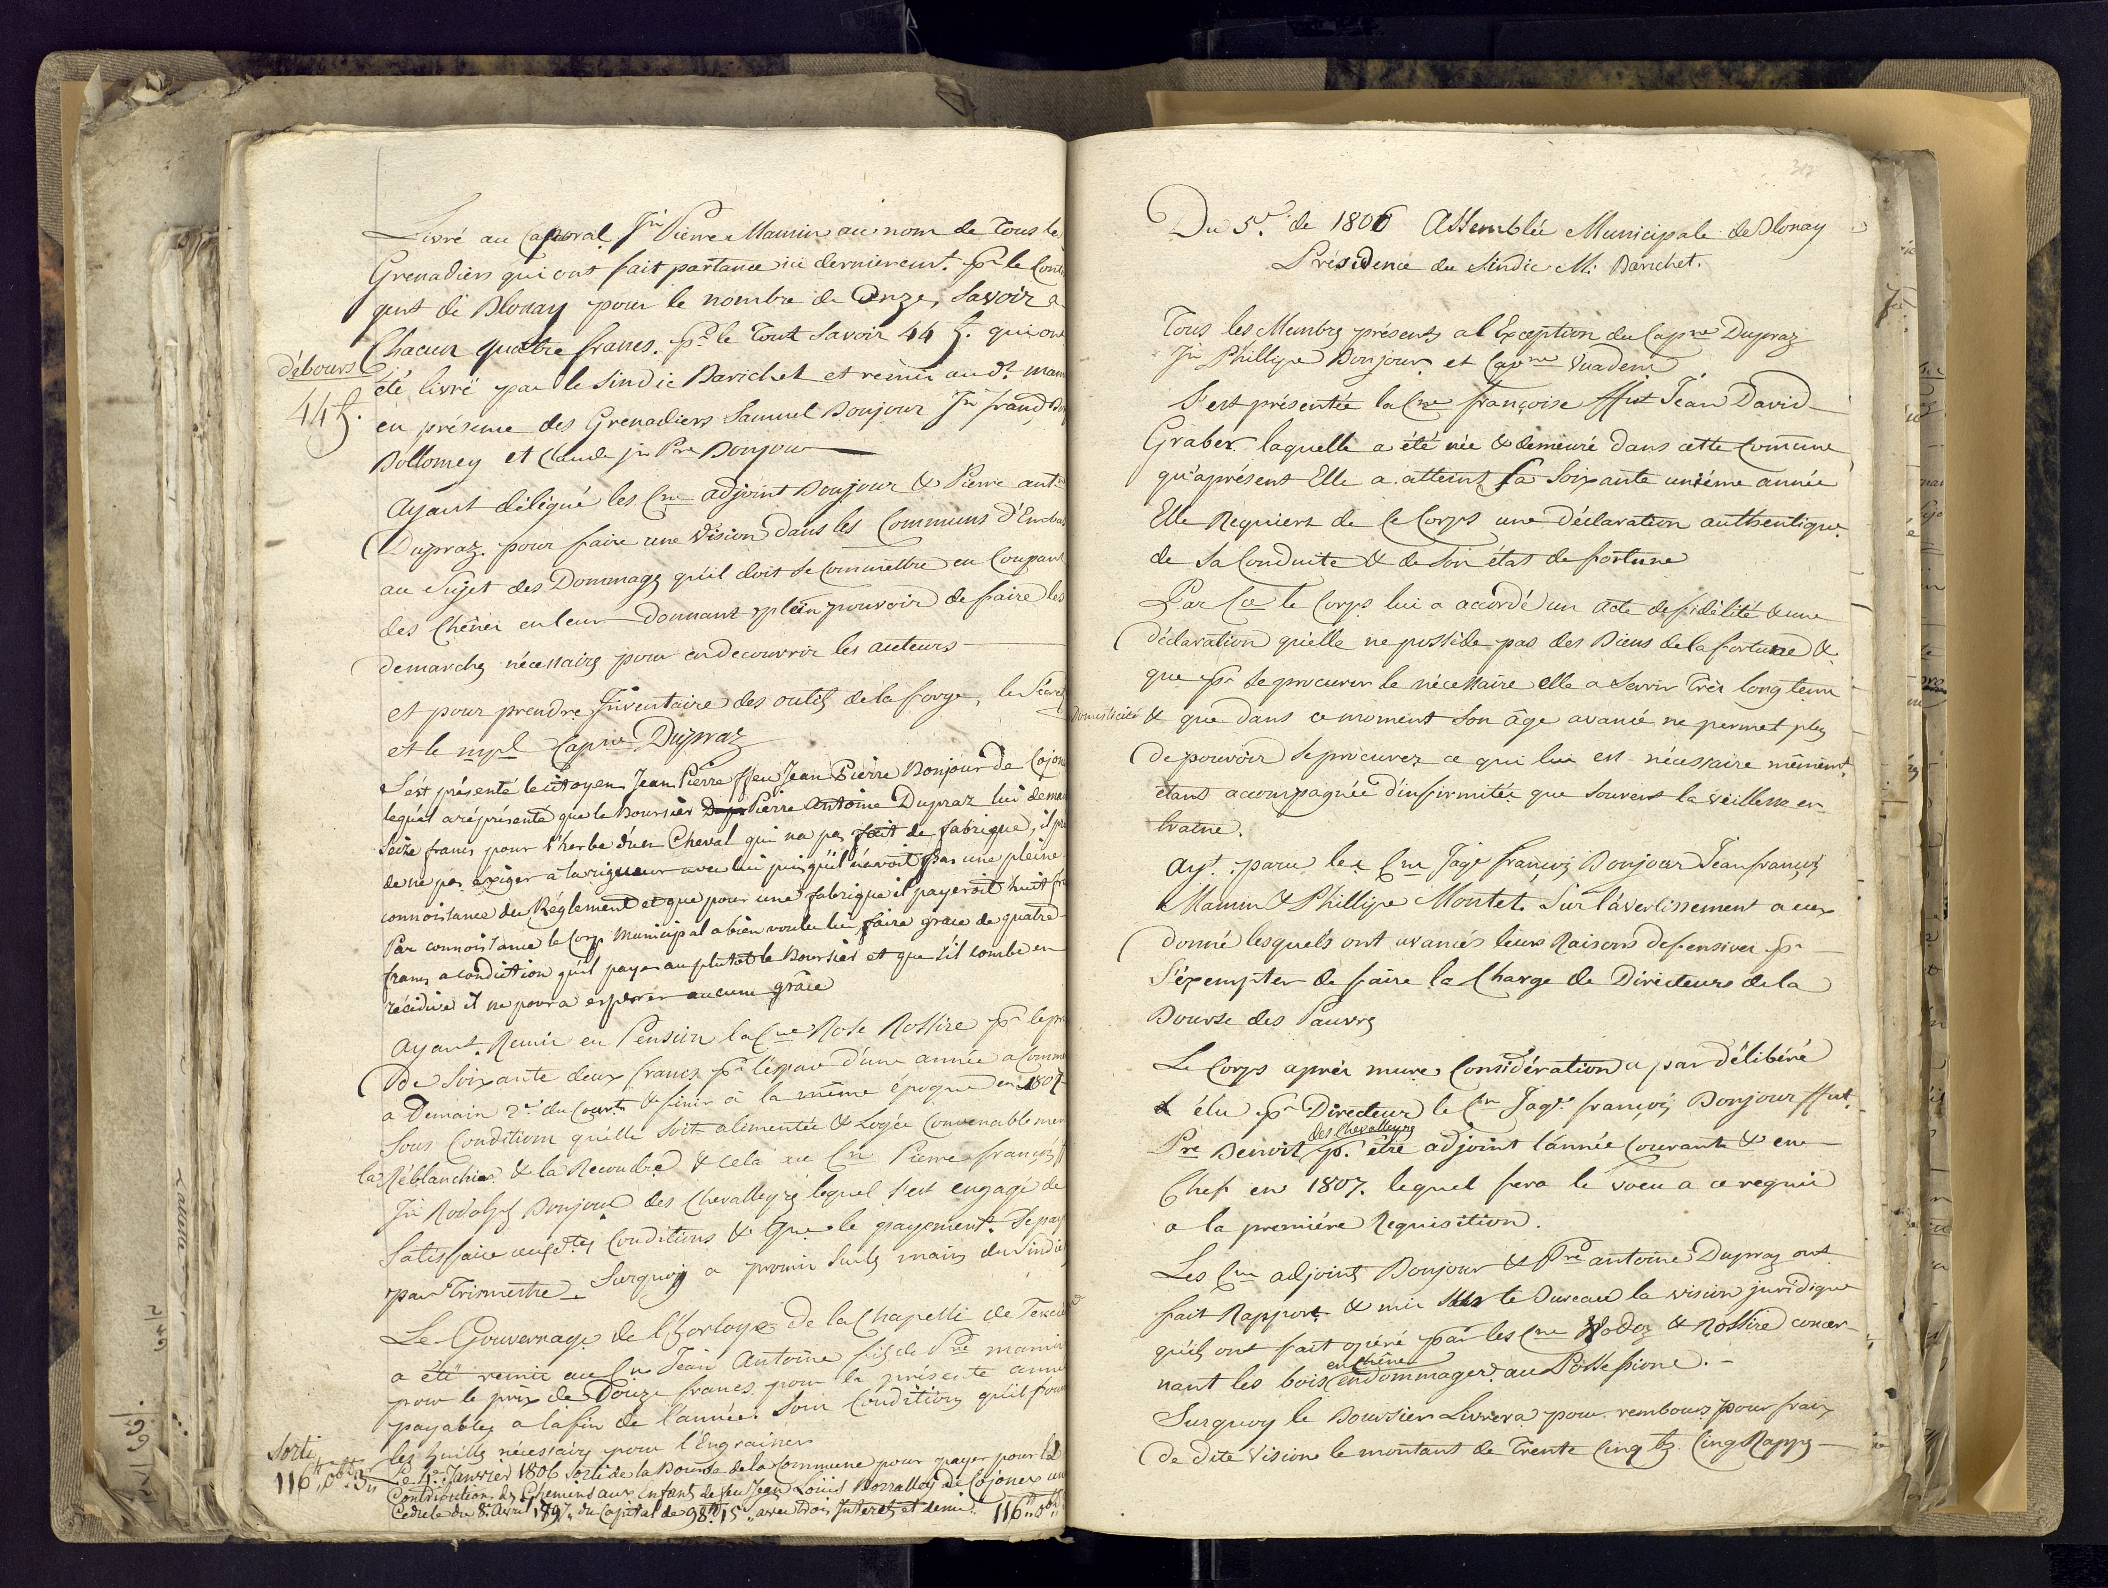 Livré au Caporal Jn Pierre Mamin au nom de Tous les
Grenadiers qui ont fait partance ici dernieremt. pr le Contin
gent de Blonay pour le nombre de Onze, Savoir a
Chacun quatre francs. pr le Tout Savoir 44 f. qui ont
débours
44 f.
été livré par le Sindic Barichet et remis au dt. mam
en présence des Grenadiers Samuel Bonjour Jn frand
Dollomey et Claude jn Pre Bonjour
Ayant délégué les Cns adjoint Bonjour & Pierre antne
Dupraz. pour faire une Vision dans les Communs d'Enbas
au Sujet des Dommages qu'il doit Se Commettre en Coupant
des Chênes en leur Donnant plein pouvoir de faire les
demarches nécessaires pour en decouvrir les auteurs
et pour prendre Inventaire des outils de la forge, le Sécret
et le mpl Capne Dupraz
S'est présenté le citoyen Jean Pierre ffeu Jean Pierre Bonjour de Cojon
lequel a réprésenté que le Boursier Pierre Antoine Dupraz lui deman
Seize francs pour l'herbe d'un Cheval qui na pas fait de fabrique, il pri
de ne pas éxiger a la rigueur avec lui puis qu'il n'avoit pas une pleine
connoissance du Réglement et que pour une fabrique il payeroit huit fr
Par connoissance le Corps Municipal a bien voulu lui faire grace de quatre
francs a condition qu'il payer au plutot le Boursier et que s'il tombe en
récidive il ne poura esperer aucune grâce
Ayant. Remis en Pension la Cne Rose Rossire pr le prix
De Soixante deux francs pr l'espace d'une année a Comm
a Demain 2e du Court & finir a la même époque en 1807
Sous Conditions qu'elle Soit alimentée & Logée Convenablemen
la Réblanchir & la Recoudre & cela au Cn Pierre françois ff
Jn Rodolph Bonjour des Chevalleyre lequel s'est engagé de
Satisfaire auxdtes Conditions & que le payement. Se pay
par Trimestre Surquoy a promis Sur les mains du Sindic
Le Gouvernage de l'horloge de la Chapelle de Tercier
a été remis au Cn Jean Antoine fils de Pre mamin
pour le prix de Douze francs pour la présente année
payables a la fin de l'année. Sous Conditions qu'il four
les huiles nécessaires pour l'Engrainer
Sorti
116 fr 0 btz 3
Le 1er Janvier 1806 Sorti de la Bourse de la Commune pour payer pour la
Contribution des Chemins aux Enfans de feu Jean Louis Borralley de Cojonex une
Cedule du 8e Avril 1797 du Capital de 98 fr 15 avec trois Interets et demi. 116 fr 0 btz
Du 5e. de 1806 Assemblée Municipale de Blonay
Présidence du Sindic M: Barichet.
Tous les Membres présents a l'Exception du Capne Dupraz
Jn Phillipe Bonjour et Capne Vuadens
S'est présentée la Cne françoise ffut Jean David
Graber. laquelle a été née & demeuré dans cette Comune
qu'aprésent Elle a atteint Sa Soixante uniéme année
Elle Requiert de Ce Corps une déclaration authentique
de Sa Conduite & de Son état de fortune
Par Ce le Corps lui a accordé un Acte de fidélité & une
déclaration qu'elle ne possède pas des Biens de la fortune &
que pr Se procurer le nécessaire elle a Servir Très longtems
Domisticité
& que dans ce moment Son âge avancé ne permet plus
De pouvoir Se procurer ce qui lui est nécessaire mêment.
etant accompagnée d'infirmitée que Souvent la vieillesse en
traine.
Ayt. paru les Cns Jaqe françois Bonjour Jean françois
Mamin & Phillipe Montet. Sur l'avertissement a eux
donné lesquels ont avancés leurs Raisons defensives pr
S'éxempter de faire la Charge de Directeurs de la
Bourse des Pauvres
Le Corps après mure Considération a par délibéré
& élu pr Directeur le Cn Jaqe françois Bonjour ffut.
des Chevalleyres
Pre Benoit pr. être adjoint l'année Courante & en
Chef en 1807. lequel fera le voeu a ce requis
a la premiére Requisition.
Les Cns adjoint Bonjour & Pre antoine Dupraz ont
fait Rapport & mis Sur le Bureau la vision juridique
qu'ils ont fait opéré par les Cns Vodoz & Rossire concer
en chêne
nant les bois endommagers. au Possessions.
Surquoy le Boursier Livrera pour rembours pour frais
de dite Vision le montant de Trente Cinq bz Cinq Rapps